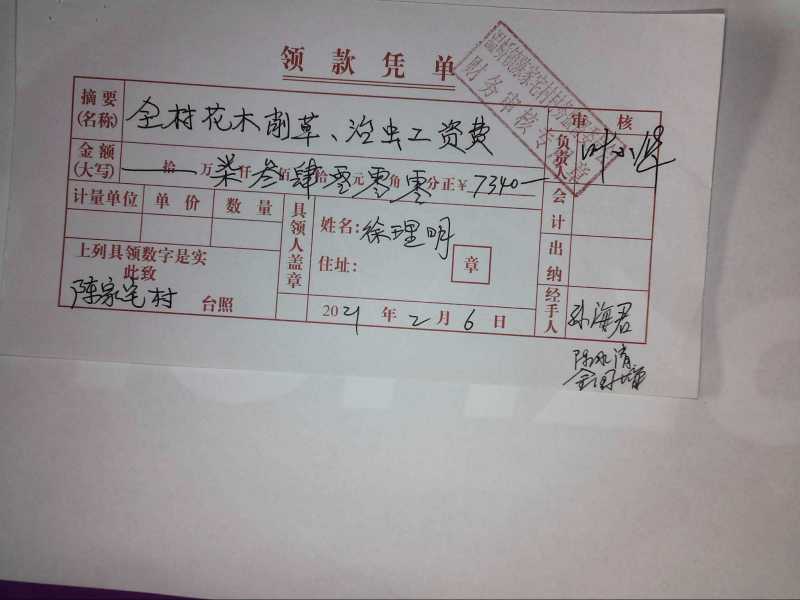 领款凭单
摘要(名称) 全村花木削草、治虫工资费
金额(大写) 拾万柒仟叁佰肆拾零元零角零分正¥7340—
计量单位 单价 数量
上列具领数字是实
此致
陈家宅村 台照
具领人盖章
姓名:徐理明
住址: 章
2021年2月6日
审核
负责人
会计
出纳
经手人 孙海君
财务审核